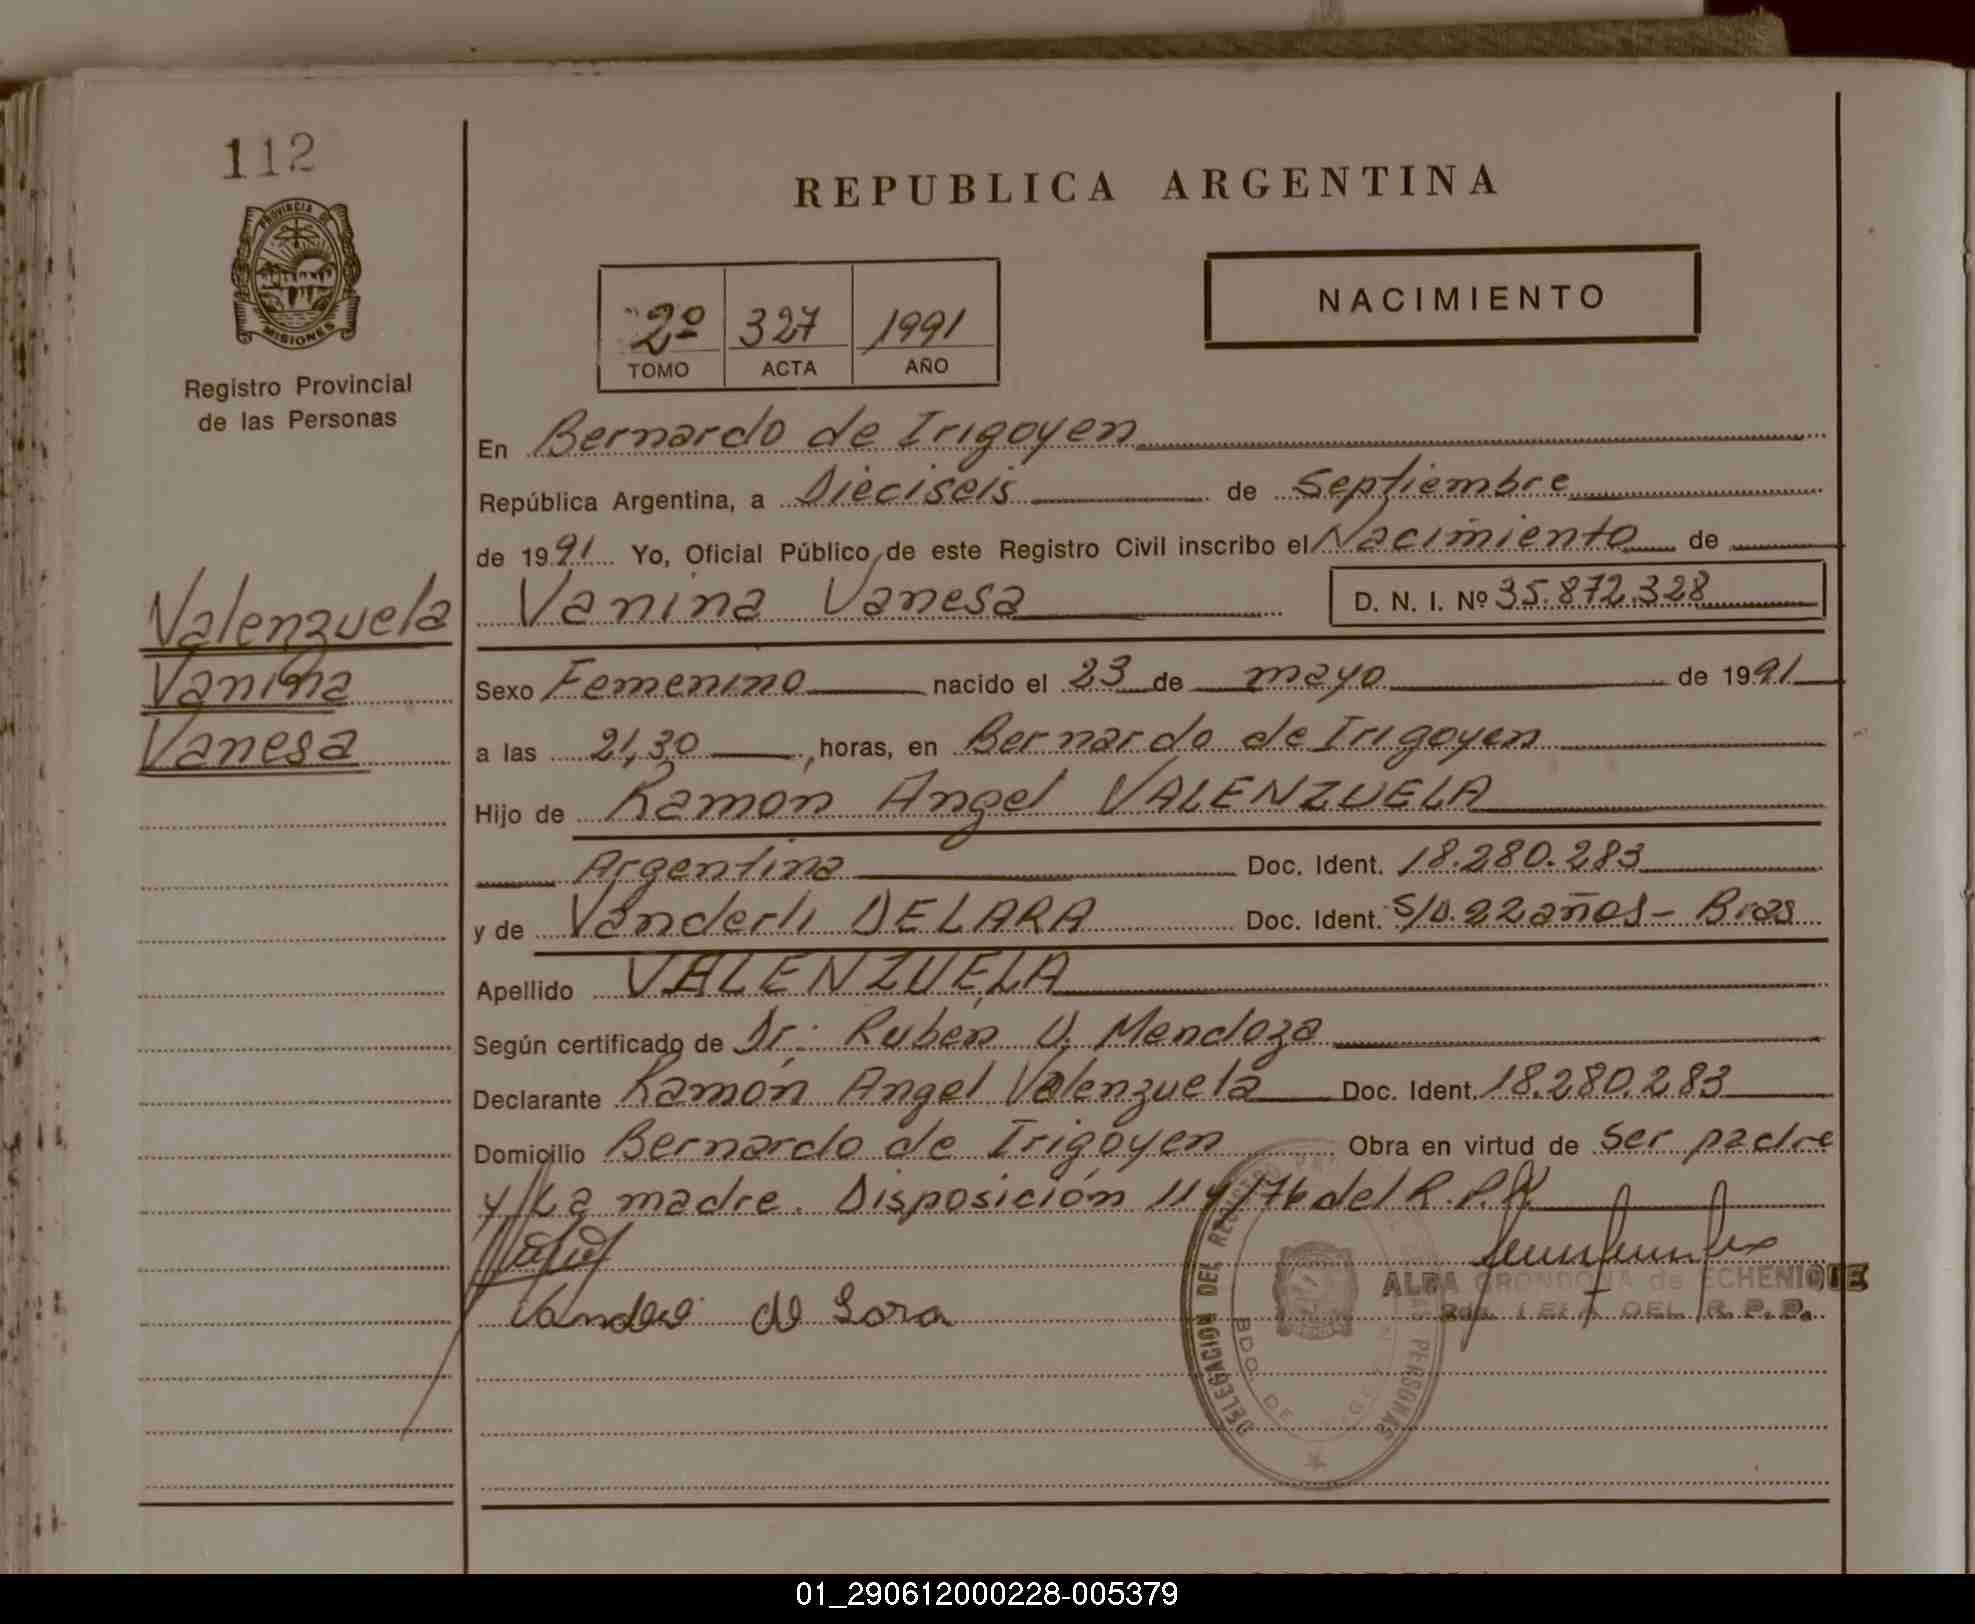 112
PROVINCIA DE
MISIONES
Registro Provincial
de las Personas
Valenzuela
Vanina
Vanesa
REPUBLICA ARGENTINA
2º 327 1991
TOMO ACTA AÑO
NACIMIENTO
En Bernardo de Irigoyen
República Argentina, a Dieciseis de Septiembre
de 1991 Yo, Oficial Público de este Registro Civil inscribo el Nacimiento de
Vanina Vanesa D. N. I. Nº 35.872.328
Sexo Femenino nacido el 23 de mayo de 1991
a las 21,30, horas, en Bernardo de Irigoyen
Hijo de Ramón Angel VALENZUELA
Argentina Doc. Ident. 18.280.283
y de Vanderli DELARA Doc. Ident. S/D. 22 años - Bras
Apellido VALENZUELA
Según certificado de Dr. Ruben D. Mendoza
Declarante Ramón Angel Valenzuela Doc. Ident. 18.280.283
Domicilio Bernardo de Irigoyen Obra en virtud de ser padre
y La madre. Disposición 114/76 del R.P.P.
de Lara
ALBA GRONDONA de ECHENIQUE
JEFA DEL R.P.P.
DELEGACION DEL REGISTRO PERSONAS
BDO. DE
01_290612000228-005379